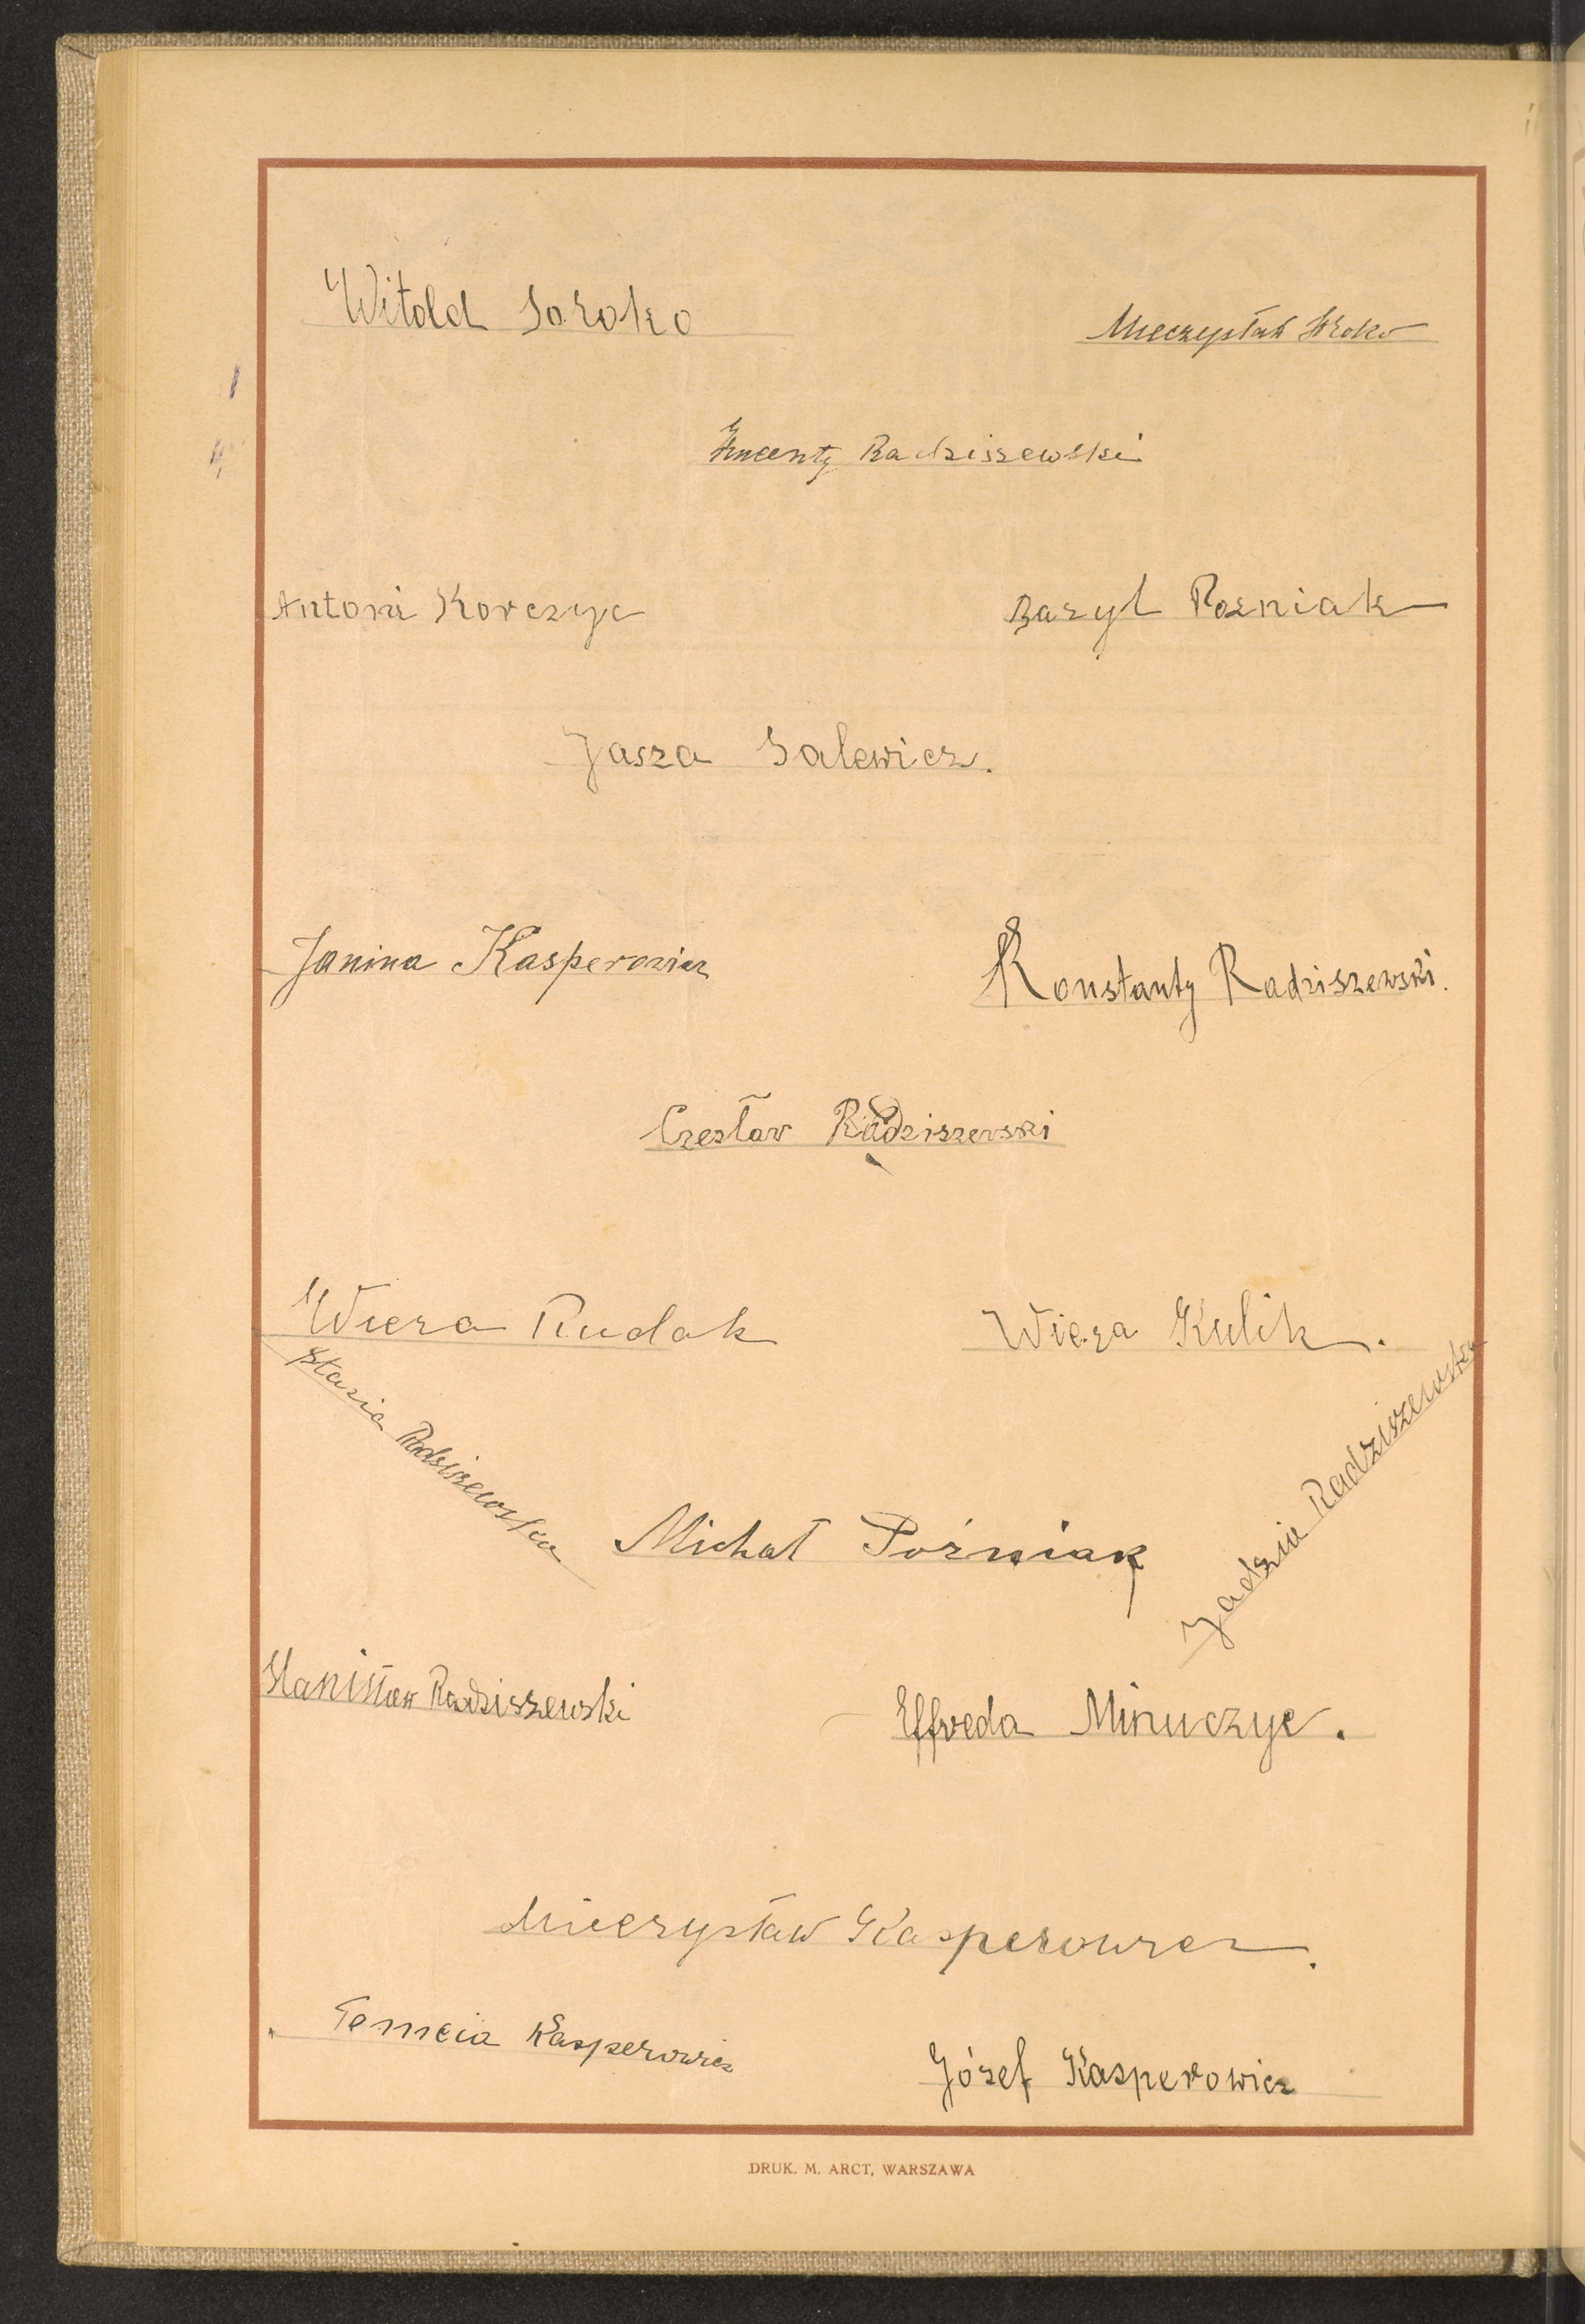 Witold Soroko
Mieczysław Soroko
Wincenty Radziszewski
Antoni Korczyc
Bazyl Pozniak
Jasza Salewicz.
Janina Kasperowicz
Konstanty Radziszewski.
Czesław Radziszewski
Wiera Rudak
Wiera Kulik.
Stasia Radziszewska
Jadzia Radziszewska
Michał Poźniak
Stanisław Radziszewski
Effreda Minuczyc.
Mieczysław Kasperowicz.
Kasperowicz
Józef Kasperowicz
DRUK. M. ARCT, WARSZAWA